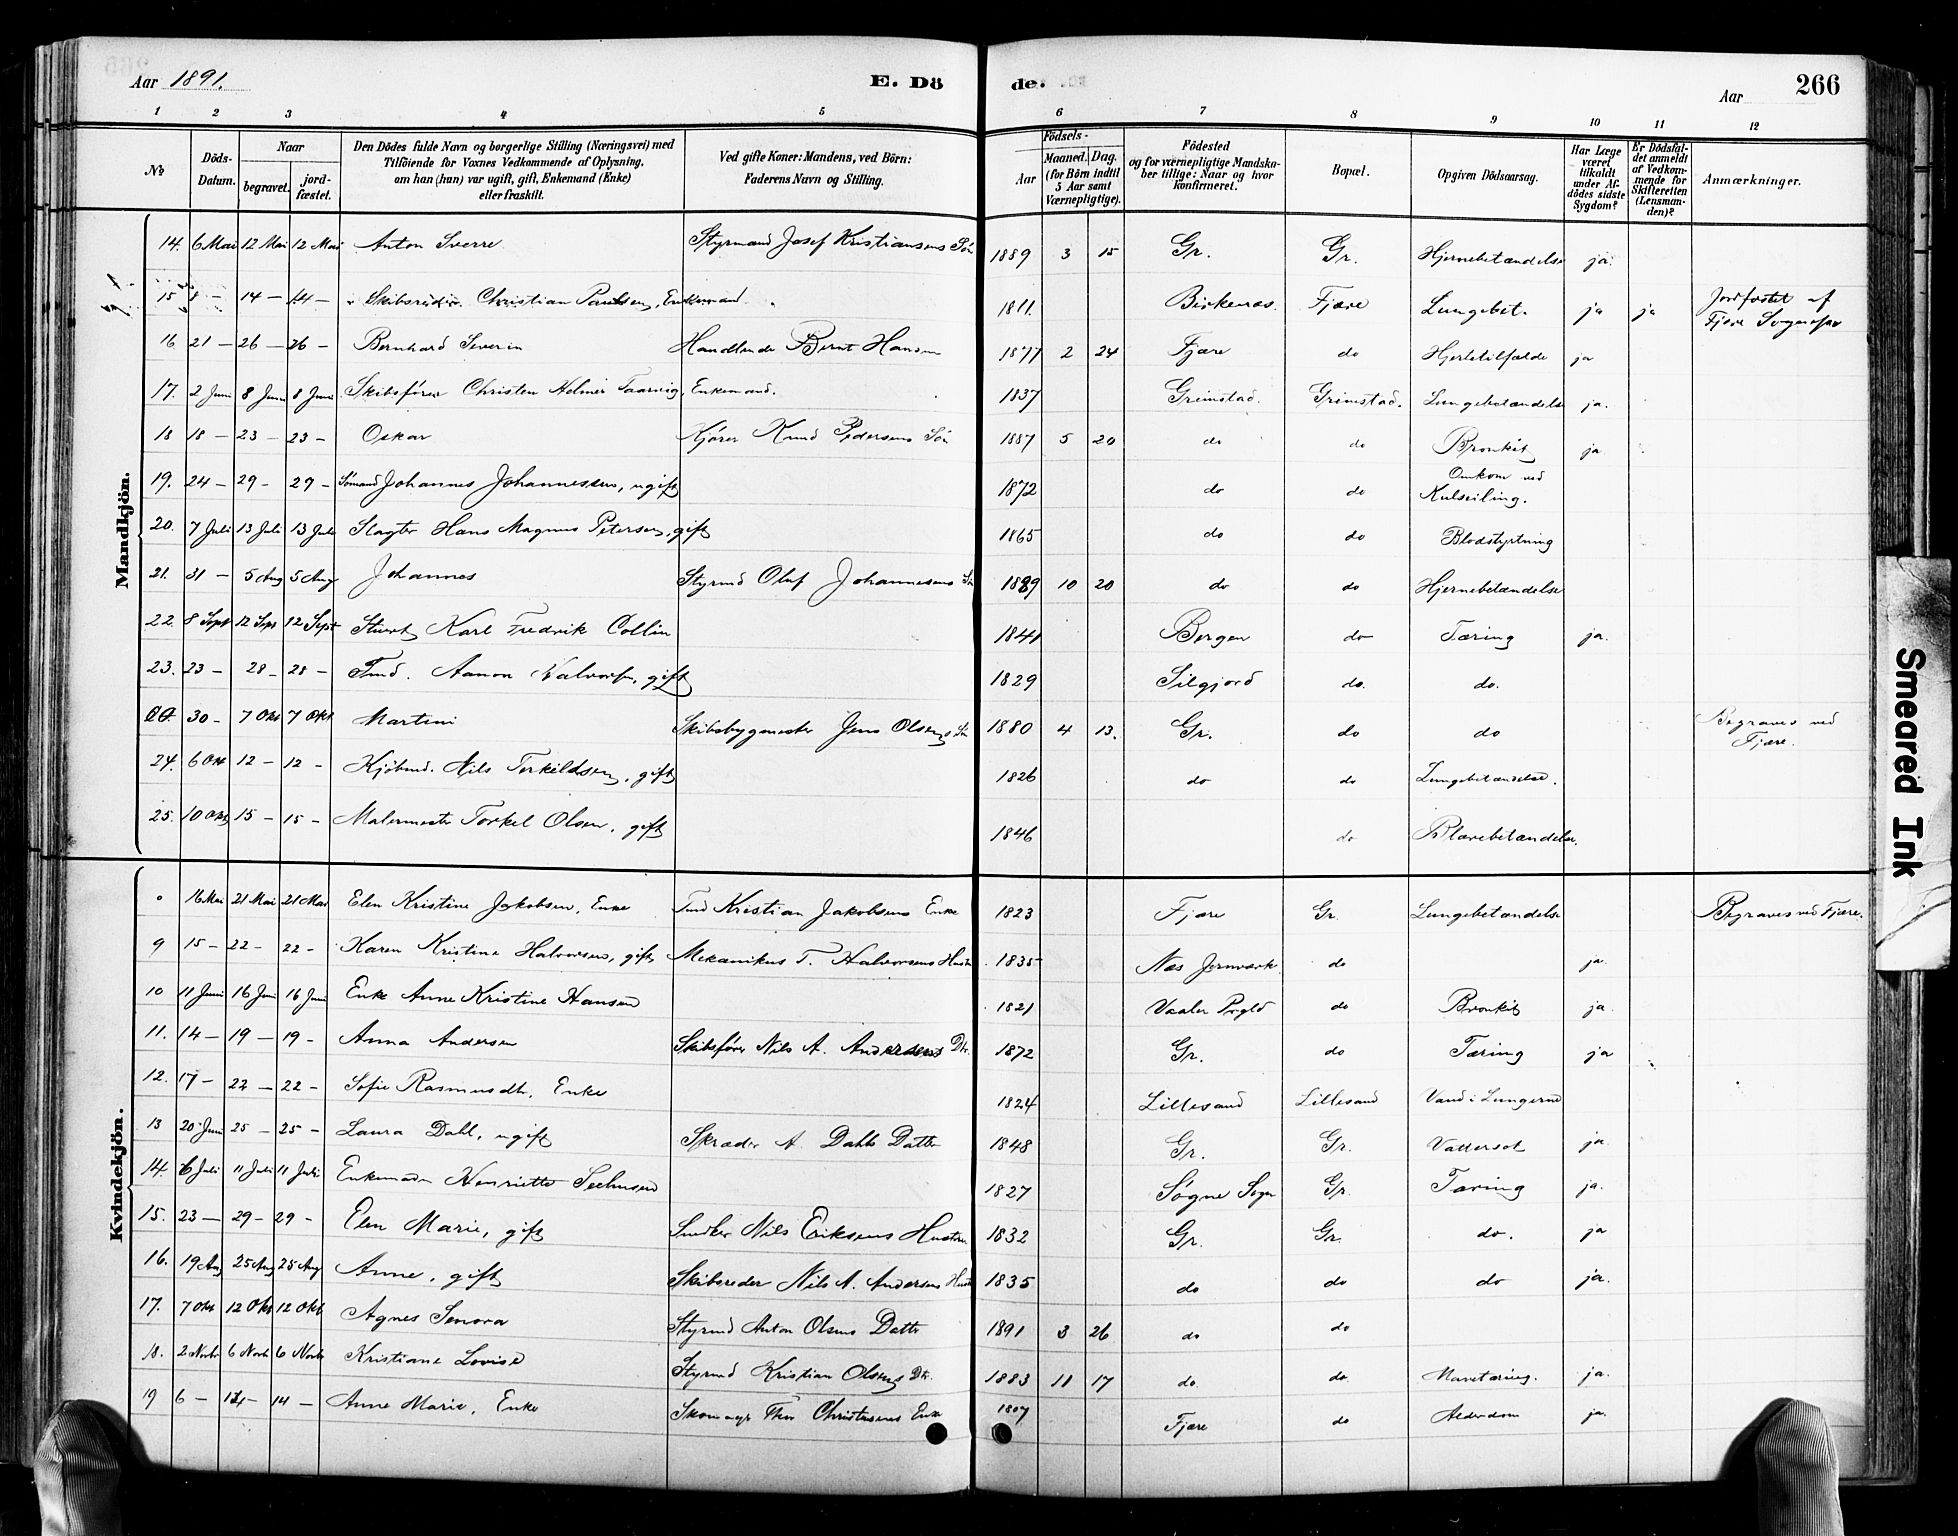 Aar 1891. E. Dö de. Aar 266
1 2 3 4 5 6 7 8 9 10 11 12
№ Döds-Datum. Naar begravet. jordfæstet. Den Dödes fulde Navn og borgerlige Stilling (Næringsvei) med Tilföiende for Voxnes Vedkommende af Oplysning, om han (hun) var ugift, gift, Enkemand (Enke) eller fraskilt. Ved gifte Koner: Mandens, ved Börn: Faderens Navn og Stilling. Födsels- Aar Maaned. Dag. (for Börn indtil 5 Aar samt Værnepligtige). Födested og for værnepligtige Mandskaber tillige: Naar og hvor konfirmeret. Bopæl. Opgiven Dödsaarsag. Har Læge været tilkaldt under Afdödes sidste Sygdom? Er Dödsfaldet anmeldt af Vedkommende for Skifteretten (Lensmanden)? Anmærkninger.
Mandkjön.
14. 6 Mai 12 Mai 12 Mai Anton Sverre Styrmand Josef Kristiansens Sön 1889 3 15 Gr. Gr. Hjernebetændelse ja.
15 8 – 14 – 14 – Skibsreder Christian Paulsen, Enkemand 1811. Birkenæs. Fjære Lungebet. ja ja Jordfæstet af Fjære Sognepr
16 21 – 26 – 26 – Bernhard Severin Handlende Bernt Hansen 1877 2 24 Fjære do Hjertetilfælde ja
17. 2 Juni 8 Juni 8 Juni Skibsfører Christen Helmer Taarvig, Enkemand. 1837 Grimstad. Grimstad. Lungebetændelse ja.
18 18 – 23 – 23 – Oskar Kjører Knud Pedersens Sön 1887 5 20 do do Bronkit ja
19. 24 – 29 – 29 – Sömand Johannes Johannessen, ugift 1872 do do Omkom ved Kulseiling.
20. 7 Juli 13 Juli 13 Juli Slagter Hans Magnus Petersen, gift 1865 do do Blodstyrtning
21. 31 – 5 Aug 5 Aug Johannes Styrmd Oluf Johannesens Sön 1889 10 20 do do Hjernebetændelse
22. 8 Sept 12 Sept 12 Sept Stuert Karl Fredrik Collin 1841 Bergen do Tæring ja.
23. 23 – 28 – 28 – Tmd. Aanon Halvorsn, gift 1829 Silgjord do. do.
30 – 7 Okt 7 Okt Martini Skibsbygmester Jens Olsens Sön 1880 4 13. Gr. do do Begraves ved Fjære.
24. 6 Okt 12 – 12 – Kjöbmd. Nils Terkildsen, gift 1826 do do Lungebetændelse.
25. 10 Okt 15 – 15 – Malermester Torkel Olsen, gift 1846 do Blærebetændelse.
Kvindekjön.
16 Mai 21 Mai 21 Mai Elen Kristine Jakobsen, Enke Tmd Kristian Jakobsens Enke 1823 Fjære Gr. Lungebetændelse Begraves ved Fjære.
9 15 – 22 – 22 – Karen Kristine Halvorsen, gift Mekanikus T. Halvorsens Hustru 1835 Næs Jernværk do ja
10 11 Juni 16 Juni 16 Juni Enke Anne Kristine Hansen 1821 Vaaler Prgld do Bronkit ja.
11. 14 – 19 – 19 – Anna Andersen Skibsfører Nils A. Andersens Dtr. 1872 Gr. do Tæring ja
12. 17 – 22 – 22 – Sofie Rasmusdtr. Enke 1824 Lillesand Lillesand Vand i Lungerne
13 20 Juni 25 – 25 – Laura Dahl, ugift Skræder A. Dahls Datter 1848 Gr. Gr. Vattersot ja.
14. 6 Juli 11 Juli 11 Juli Enkemadm Henriette Seehusen 1827 Søgne Sogn Gr. Tæring ja.
15. 23 – 29 – 29 – Elen Marie, gift Snedker Nils Eriksens Hustru 1832 Gr. Gr. do. ja
16. 19 Aug 25 Aug 25 Aug Anne, gift Skibsreder Nils A. Andersens Hustru 1835 do do do ja.
17. 7 Okt 12 Okt 12 Okt Agnes Senora Styrmd Anton Olsens Datter 1891 3 26 do do
18. 2 Novbr 6 Novbr 6 Novbr Kristiane Lovise Styrmd Kristian Olsens Dtr. 1883 11 17 do do. Mavetæring. ja.
19 6 – 14 – 14 – Anne Marie, Enke Skomager Christensens Enke 1807 Fjære do Alderdom ja.
Smeared Ink